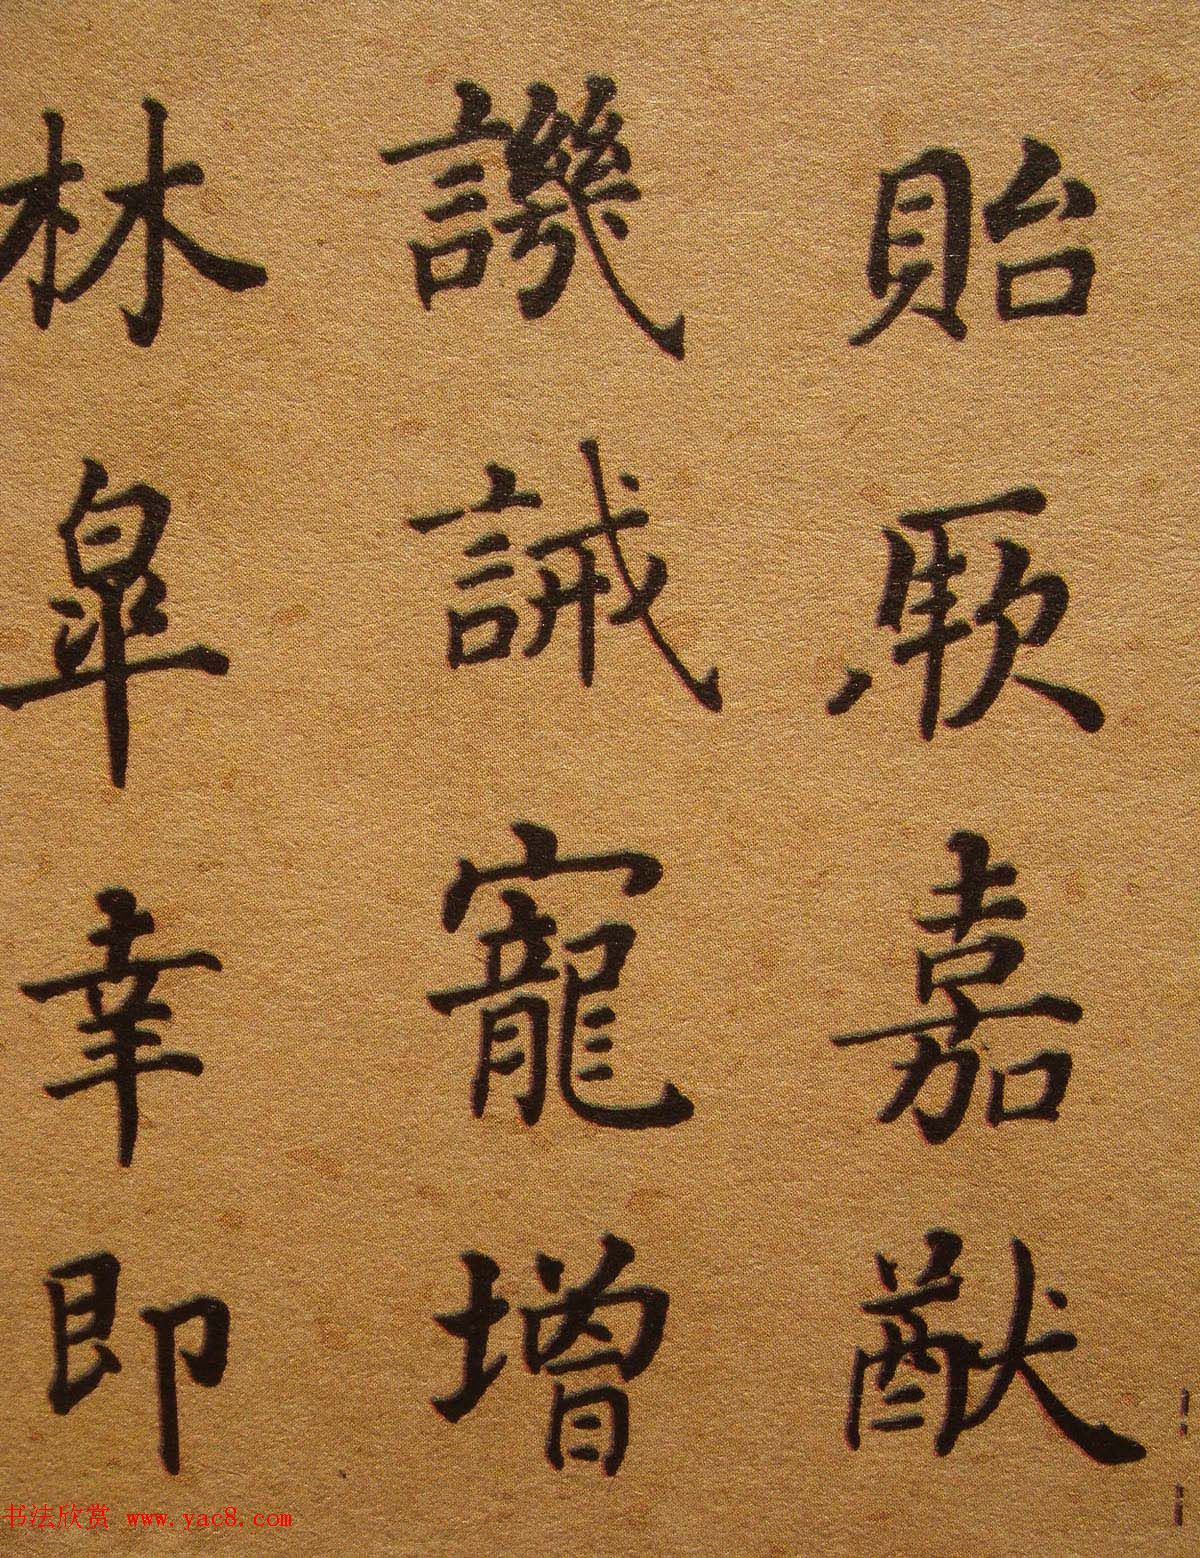 貽厥嘉猷
譏誡寵增
林皐幸即
书法欣赏 www.yac8.com